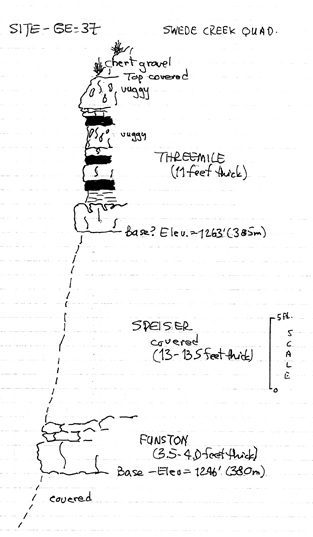 SITE-GE=37
SWEDE CREEK QUAD.
chert gravel
Top covered
vuggy
vuggy
THREEMILE
(11 feet thick)
Base? Elev.=1263' (385m)
SPEISER
covered
(13-13.5 feet thick)
5 ft.
SCALE
0
FUNSTON
(3.5-4.0 feet thick)
Base - Elev=1246' (380m)
covered